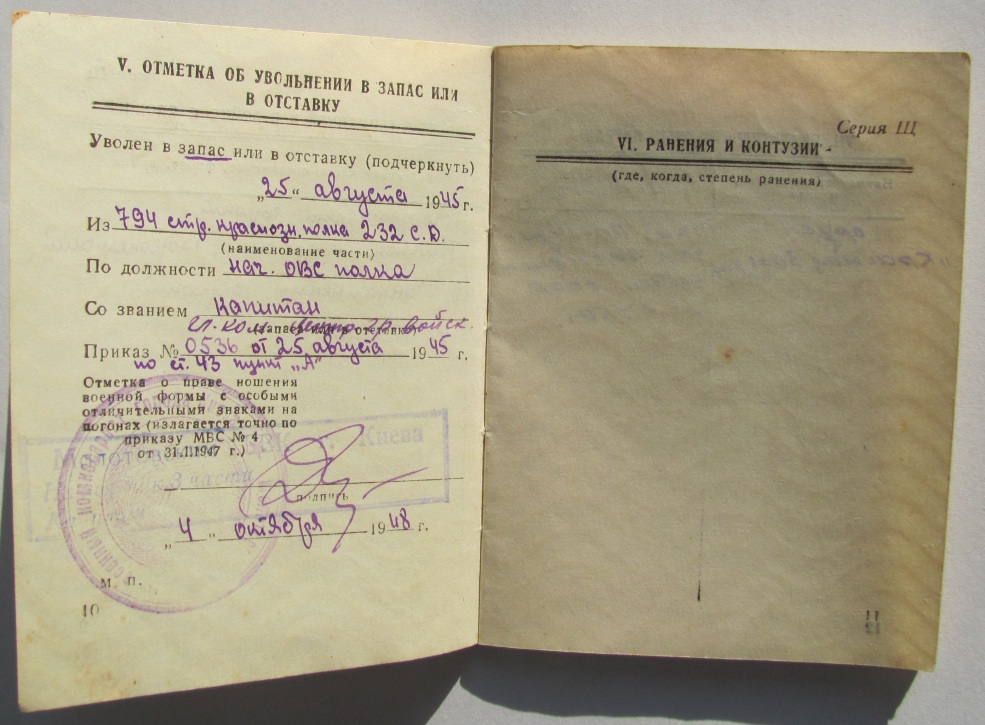 V. ОТМЕТКА ОБ УВОЛЬНЕНИИ В ЗАПАС ИЛИ
В ОТСТАВКУ
Уволен в запас или в отставку (подчеркнуть)
„25" августа 1945 г.
Из 794 стр. краснозн. полка 232 с.д.
(наименование части)
По должности нач. ОВС полка
Со званием капитан
(запаса или в отставке)
гл. ком. гр. войск.
Приказ № 0536 от 25 августа 1945 г.
по ст. 43 пункт „А"
Отметка о праве ношения
военной формы с особыми
отличительными знаками на
погонах (излагается точно по
приказу МВС № 4
от 31.I.1947 г.)
Киева
3 части
подпись
„4" октября 1948 г.
М. П.
10
Серия Щ
VI. РАНЕНИЯ И КОНТУЗИИ
(где, когда, степень ранения)